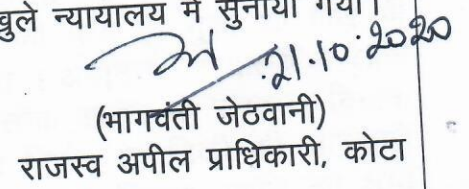 खुले न्यायालय में सुनाया गया।
21.10.2020
(भागवंती जेठवानी)
राजस्व अपील प्राधिकारी, कोटा